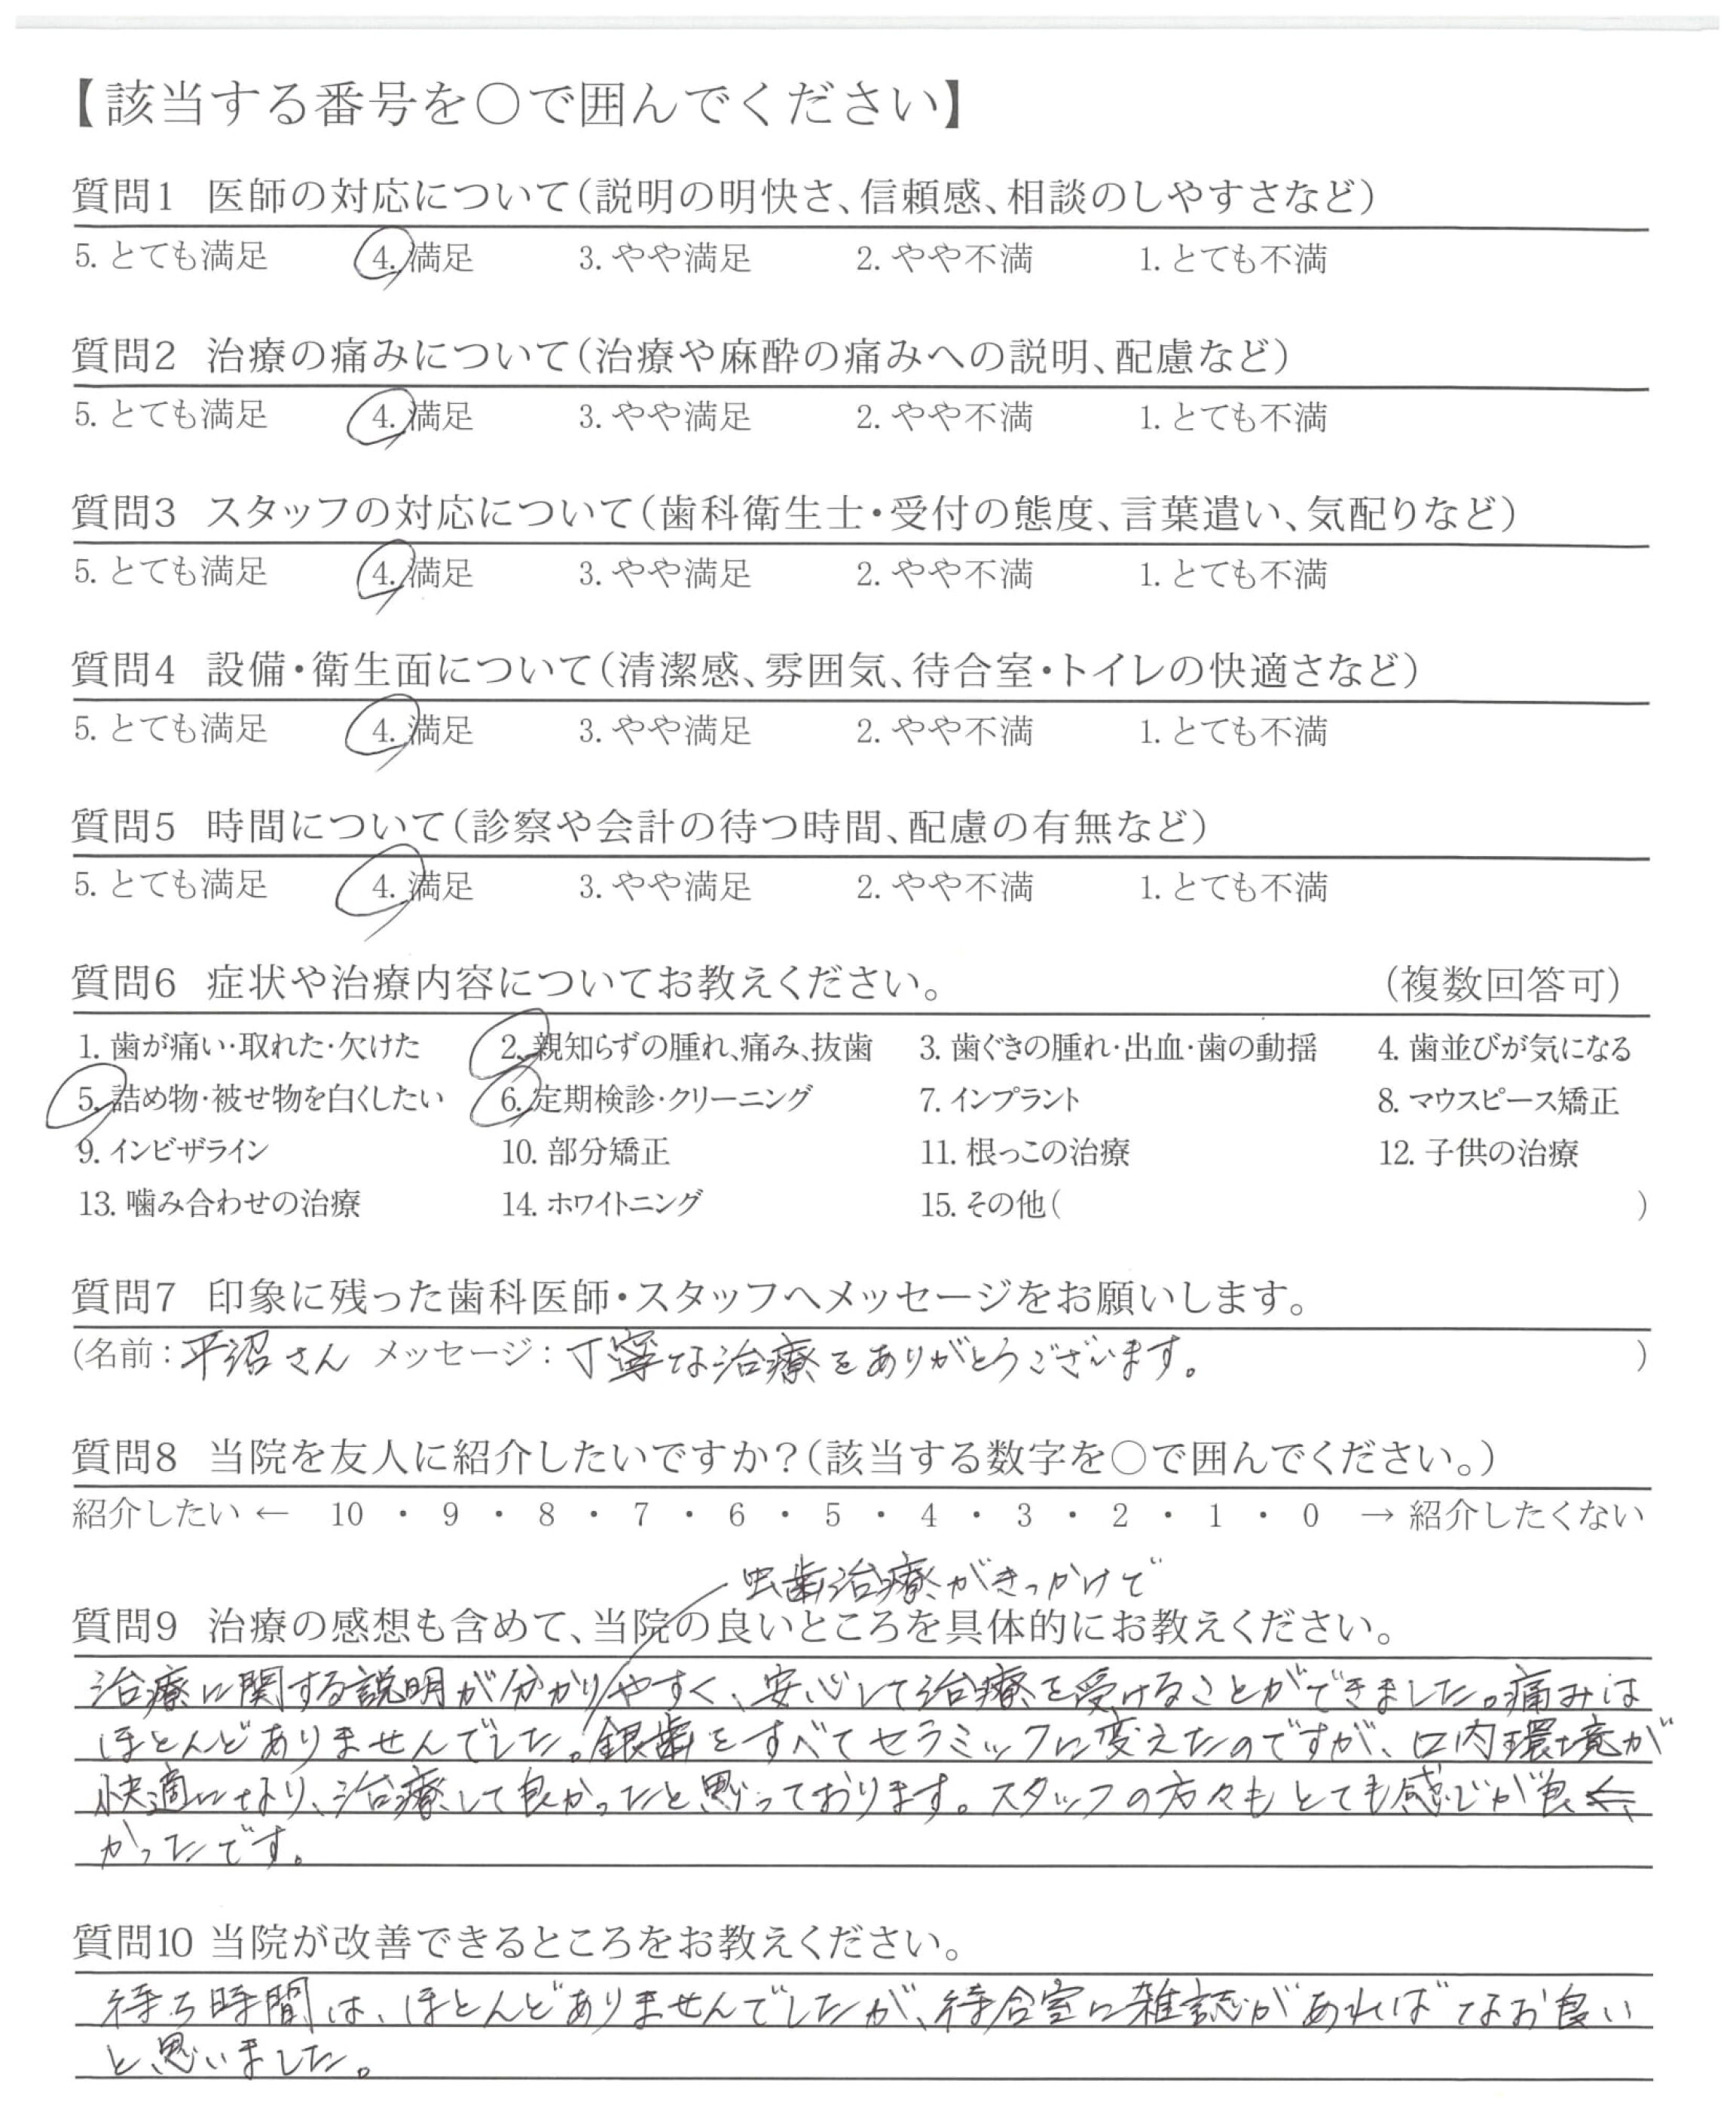 【該当する番号を○で囲んでください】
質問1 医師の対応について(説明の明快さ、信頼感、相談のしやすさなど)
5. とても満足 4. 満足 3. やや満足 2. やや不満 1. とても不満
質問2 治療の痛みについて(治療や麻酔の痛みへの説明、配慮など)
5. とても満足 4. 満足 3. やや満足 2. やや不満 1. とても不満
質問3 スタッフの対応について(歯科衛生士・受付の態度、言葉遣い、気配りなど)
5. とても満足 4. 満足 3. やや満足 2. やや不満 1. とても不満
質問4 設備・衛生面について(清潔感、雰囲気、待合室・トイレの快適さなど)
5. とても満足 4. 満足 3. やや満足 2. やや不満 1. とても不満
質問5 時間について(診察や会計の待つ時間、配慮の有無など)
5. とても満足 4. 満足 3. やや満足 2. やや不満 1. とても不満
質問6 症状や治療内容についてお教えください。 (複数回答可)
1. 歯が痛い・取れた・欠けた 2. 親知らずの腫れ、痛み、抜歯 3. 歯ぐきの腫れ・出血・歯の動揺 4. 歯並びが気になる
5. 詰め物・被せ物を白くしたい 6. 定期検診・クリーニング 7. インプラント 8. マウスピース矯正
9. インビザライン 10. 部分矯正 11. 根っこの治療 12. 子供の治療
13. 噛み合わせの治療 14. ホワイトニング 15. その他( )
質問7 印象に残った歯科医師・スタッフへメッセージをお願いします。
(名前：平沼さん メッセージ：丁寧な治療をありがとうございます。 )
質問8 当院を友人に紹介したいですか?(該当する数字を○で囲んでください。)
紹介したい ← 10 ・ 9 ・ 8 ・ 7 ・ 6 ・ 5 ・ 4 ・ 3 ・ 2 ・ 1 ・ 0 → 紹介したくない
虫歯治療がきっかけで
質問9 治療の感想も含めて、当院の良いところを具体的にお教えください。
治療に関する説明が分かりやすく、安心して治療を受けることができました。痛みは
ほとんどありませんでした。銀歯をすべてセラミックに変えたのですが、口内環境が
快適になり、治療して良かったと思っております。スタッフの方々もとても感じが良
かったです。
質問10 当院が改善できるところをお教えください。
待ち時間は、ほとんどありませんでしたが、待合室に雑誌があればなお良い
と思いました。